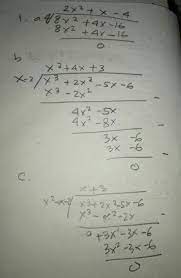 2x² + x - 4
1. a 4/ 8x² + 4x - 16
8x² + 4x - 16
0
b
x² + 4x + 3
x-2/ x³ + 2x² - 5x - 6
x³ - 2x²
4x² - 5x
4x² - 8x
3x - 6
3x - 6
0
C.
x+3
x³ + 2x² - 5x - 6
+ 3x² - 3x - 6
3x² - 3x - 6
0